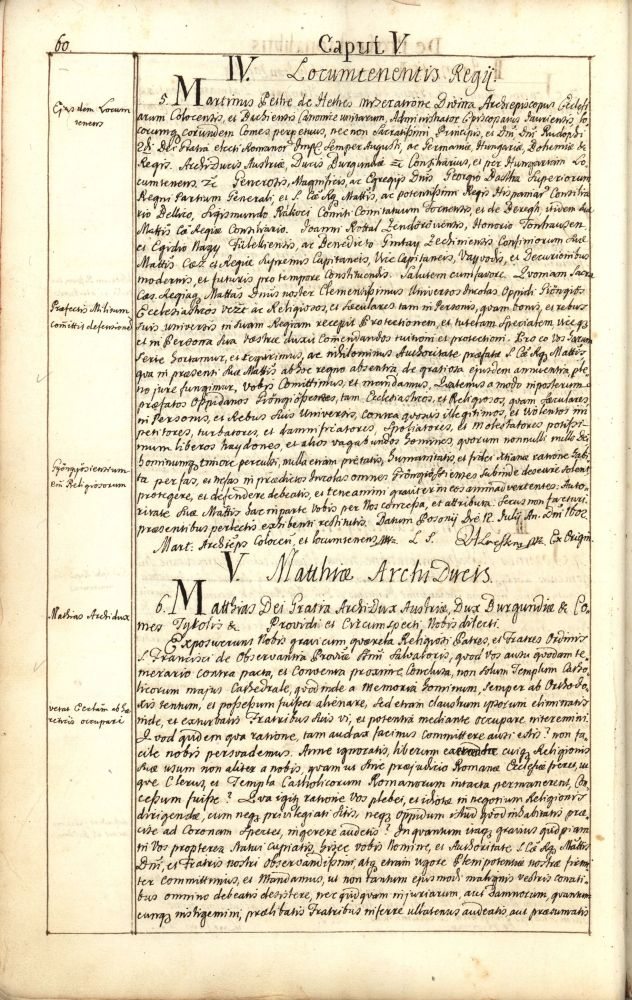 60.
Caput V
IV. Locumtenentis Regij.
Ejusdem Locum
tenens
5. Martinus Pethe de Hethes miseratione Divina Archiepiscopus Ecclesi
arum Colocensis, et Bachiensis Canonice unitarum, Administrator Episcopatus Jauriensis, lo
corumq corundem Comes perpetuus, nec non Sacratissimi Principis, et Dni Dni Rudolphi
2di Dei Gratia electi Romanor Imp Semper Augusti, ac Germaniæ, Hungariæ, Bohemiæ &
Regis. ArchiDucis Austriæ, Ducis Burgundiæ &c Consiliarius, et per Hungariam Lo
cumtenens, &c Generosis, Magnificis, ac Egregijs Dnis Georgio Basta Superiorum
Regni Partium Generali, et S. Cæ Rq Mattis, ac potentissimi Regis Hispaniar Consilia
rio Bellico, Sigismundo Rakoci Comiti Comitatuum Tornensis, et de Beregh, itidem suæ
Mattis Cæ Regiæ Consiliario. Joanni Rottal Zendoroviensis, Honorio Tonhausen
et Egidio Nagy Fülekiensis, ac Benedicto Zechiniensis Confiniorum suæ
Mattis Cæs et Regiæ Supremis Capitaneis, Vice Capitaneis, Vayvodis, et Decurionibus
modernis, et futuris pro tempore Constituendis. Salutem cum favore. Quoniam Sacra
Præfectis Militum
comittit defensionem
Cæs Regiaq Mattas Dnus noster Clementissimus Universos Incolas Oppidi Gyöngyös
Ecclesiasticos ac Religiosos, et sæculares tam in Personis, quam bonis, et rebus
suis universis in suam Regiam recepit Protectionem, et tutelam specialem, vicequs
et in Persona sua vestræ duxit comendandos tuitioni et protectioni. Pro eo vos harum
serie hortamur, et requirimus, ac nihilominus Authoritate præfatæ S. Cæ Rq Mattis
qua in præsenti suæ Mattis ab hoc regno absentia, de gratiosa ejusdem annuentia ple
no jure fungimur, vobis Comittimus, et mandamus, Quatenus a modo in posterum
præfatos Oppidanos Gyöngyösienses, tam Ecclesiasticos, et Religiosos, quam sæculares
in Personis, et Rebus suis Universis, contra quosvis illegitimos, et violentos im
petitores, turbatores, et damnificatores, spoliatores, et molestatores potissi
mum liberos haydones, et alios vagabundos homines, quorum nonnulli nullo Dei,
Gyöngyösiensium
etiã Religiosorum
hominumq timore perculsi, nulla etiam pietatis, humanitatis, et fidei Xtianæ ratione habi
ta per fas, et nefas in prædictos Incolas omnes Gyöngyösienses subinde desævire solent
protegere, et defendere debeatis, et teneamini graviter in eos animadvertentes. Autho
ritate suæ Mattis hac in parte vobis per Nos concessa, et attributa. Secus non facturi.
præsentibus perlectis exhibenti restitutis. Datum Posonij Die 12. Julij An. Dni 1602.
Mart: Archiepus Colocen, et locumtenens L. S. Ex Origin.
V. Matthiæ ArchiDucis.
Mathias Archidux
6. Matthias Dei Gratia ArchiDux Austriæ, Dux Burgundiæ & Co
mes Tyrolis & Providi et Circumspecti, Nobis dilecti.
Exposuerunt Nobis gravi cum quærela Religiosi Patres, et Fratres Ordinis
S. Francisci de Observantia Provinciæ Smi Salvatoris, quod Vos ausu quodam te
merario contra pacta, et Conventa proxime Conclusa, non solum Templum Catho
vetat Ecclam ab hæ
reticis occupari
licorum majus Cathedrale, quod inde a Memoria hominum, Semper ab Orthodo
xis tentum, et possessum fuisset alienare, Sed etiam claustrum ipsorum eliminatis
inde, et exturbatis Fratribus suis vi, et potentia mediante occupare niteremini.
Quod quidem qua ratione, tam audax facimus committere ausi estis? non fa
cile nobis persvademus. Anne ignoratis, liberum cuiq Religionis
suæ usum non aliter a nobis, quam ut sine præjudicio Romanæ Ecclesiæ fieret, ut
que Clerus, et Templa Catholicorum Romanorum intacta permanerent, Con
cessum fuisse? Qua igitur ratione Vos plebei, et idiotæ in negotium Religionis
dirigendæ, cum neq privilegiati sitis, neq oppidum istud quod inhabitatis præ
cise ad Coronam spectet, ingerere audetis? In quantum itaq gravius quidpiam
ni Vos propterea statui cupiatis, hisce vobis Nomine, et Authoritate S. Cæ Rq Mattis
Dni, et Fratris nostri Observandissimi, atq etiam vigore Plenipotentiæ nostræ firmi
ter committimus, et Mandamus, ut non tantum ejusmodi malignis vestris conati
bus omnino debeatis desistere, nec quidquam injuriarum, aut damnorum, quantum
cunq mis ligemini, prælibatis Fratribus inferre ulterius audeatis, aut præsumatis